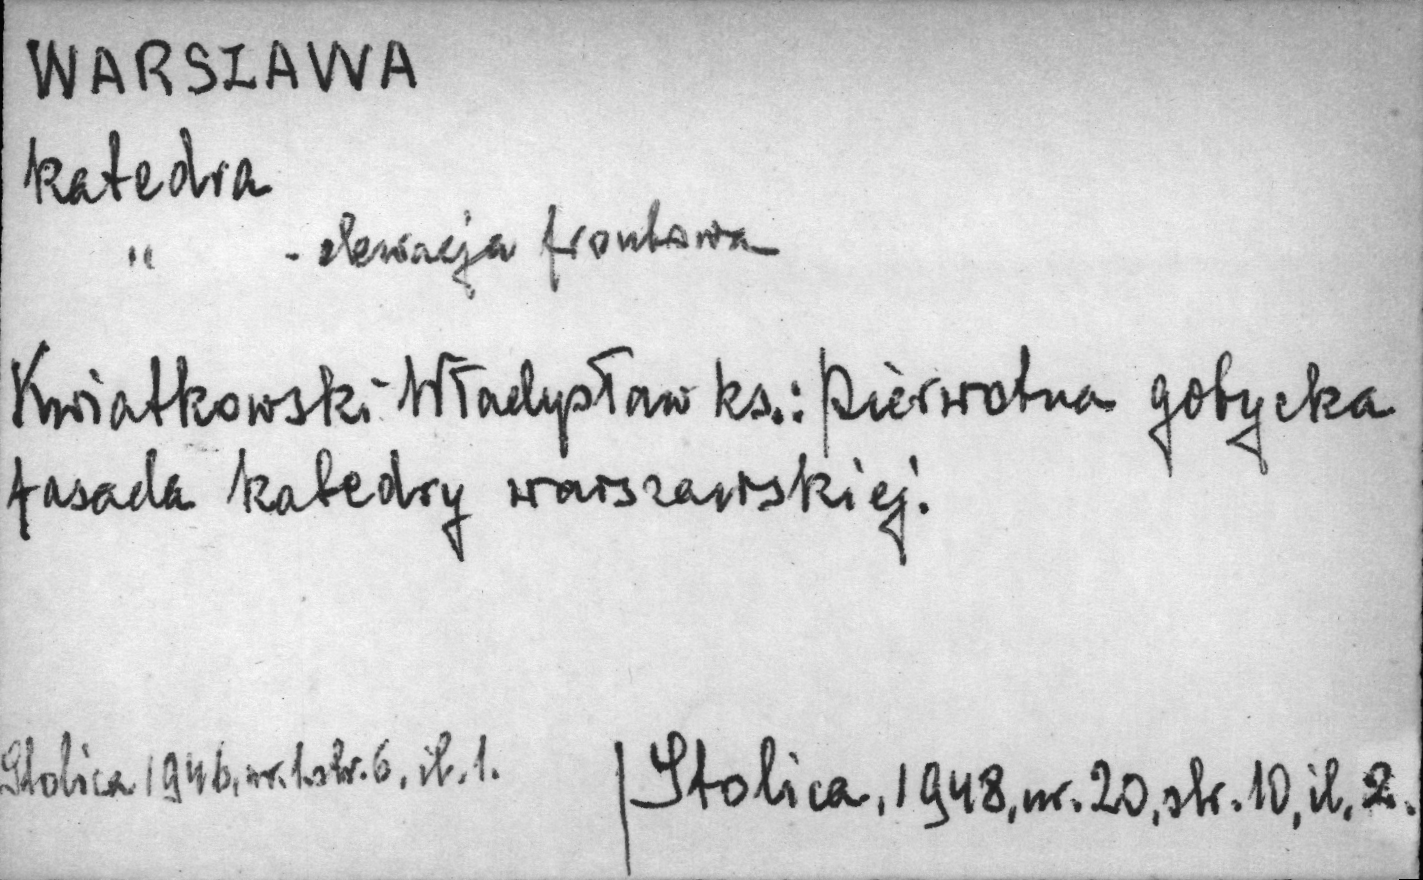 WARSZAWA
katedra
" - elewacja frontowa
Kwiatkowski Władysław ks.: Pierwotna gotycka
fasada katedry warszawskiej.
Stolica 1946, nr. 1. str. 6, il. 1. | Stolica, 1948, nr. 20, str. 10, il. 2.